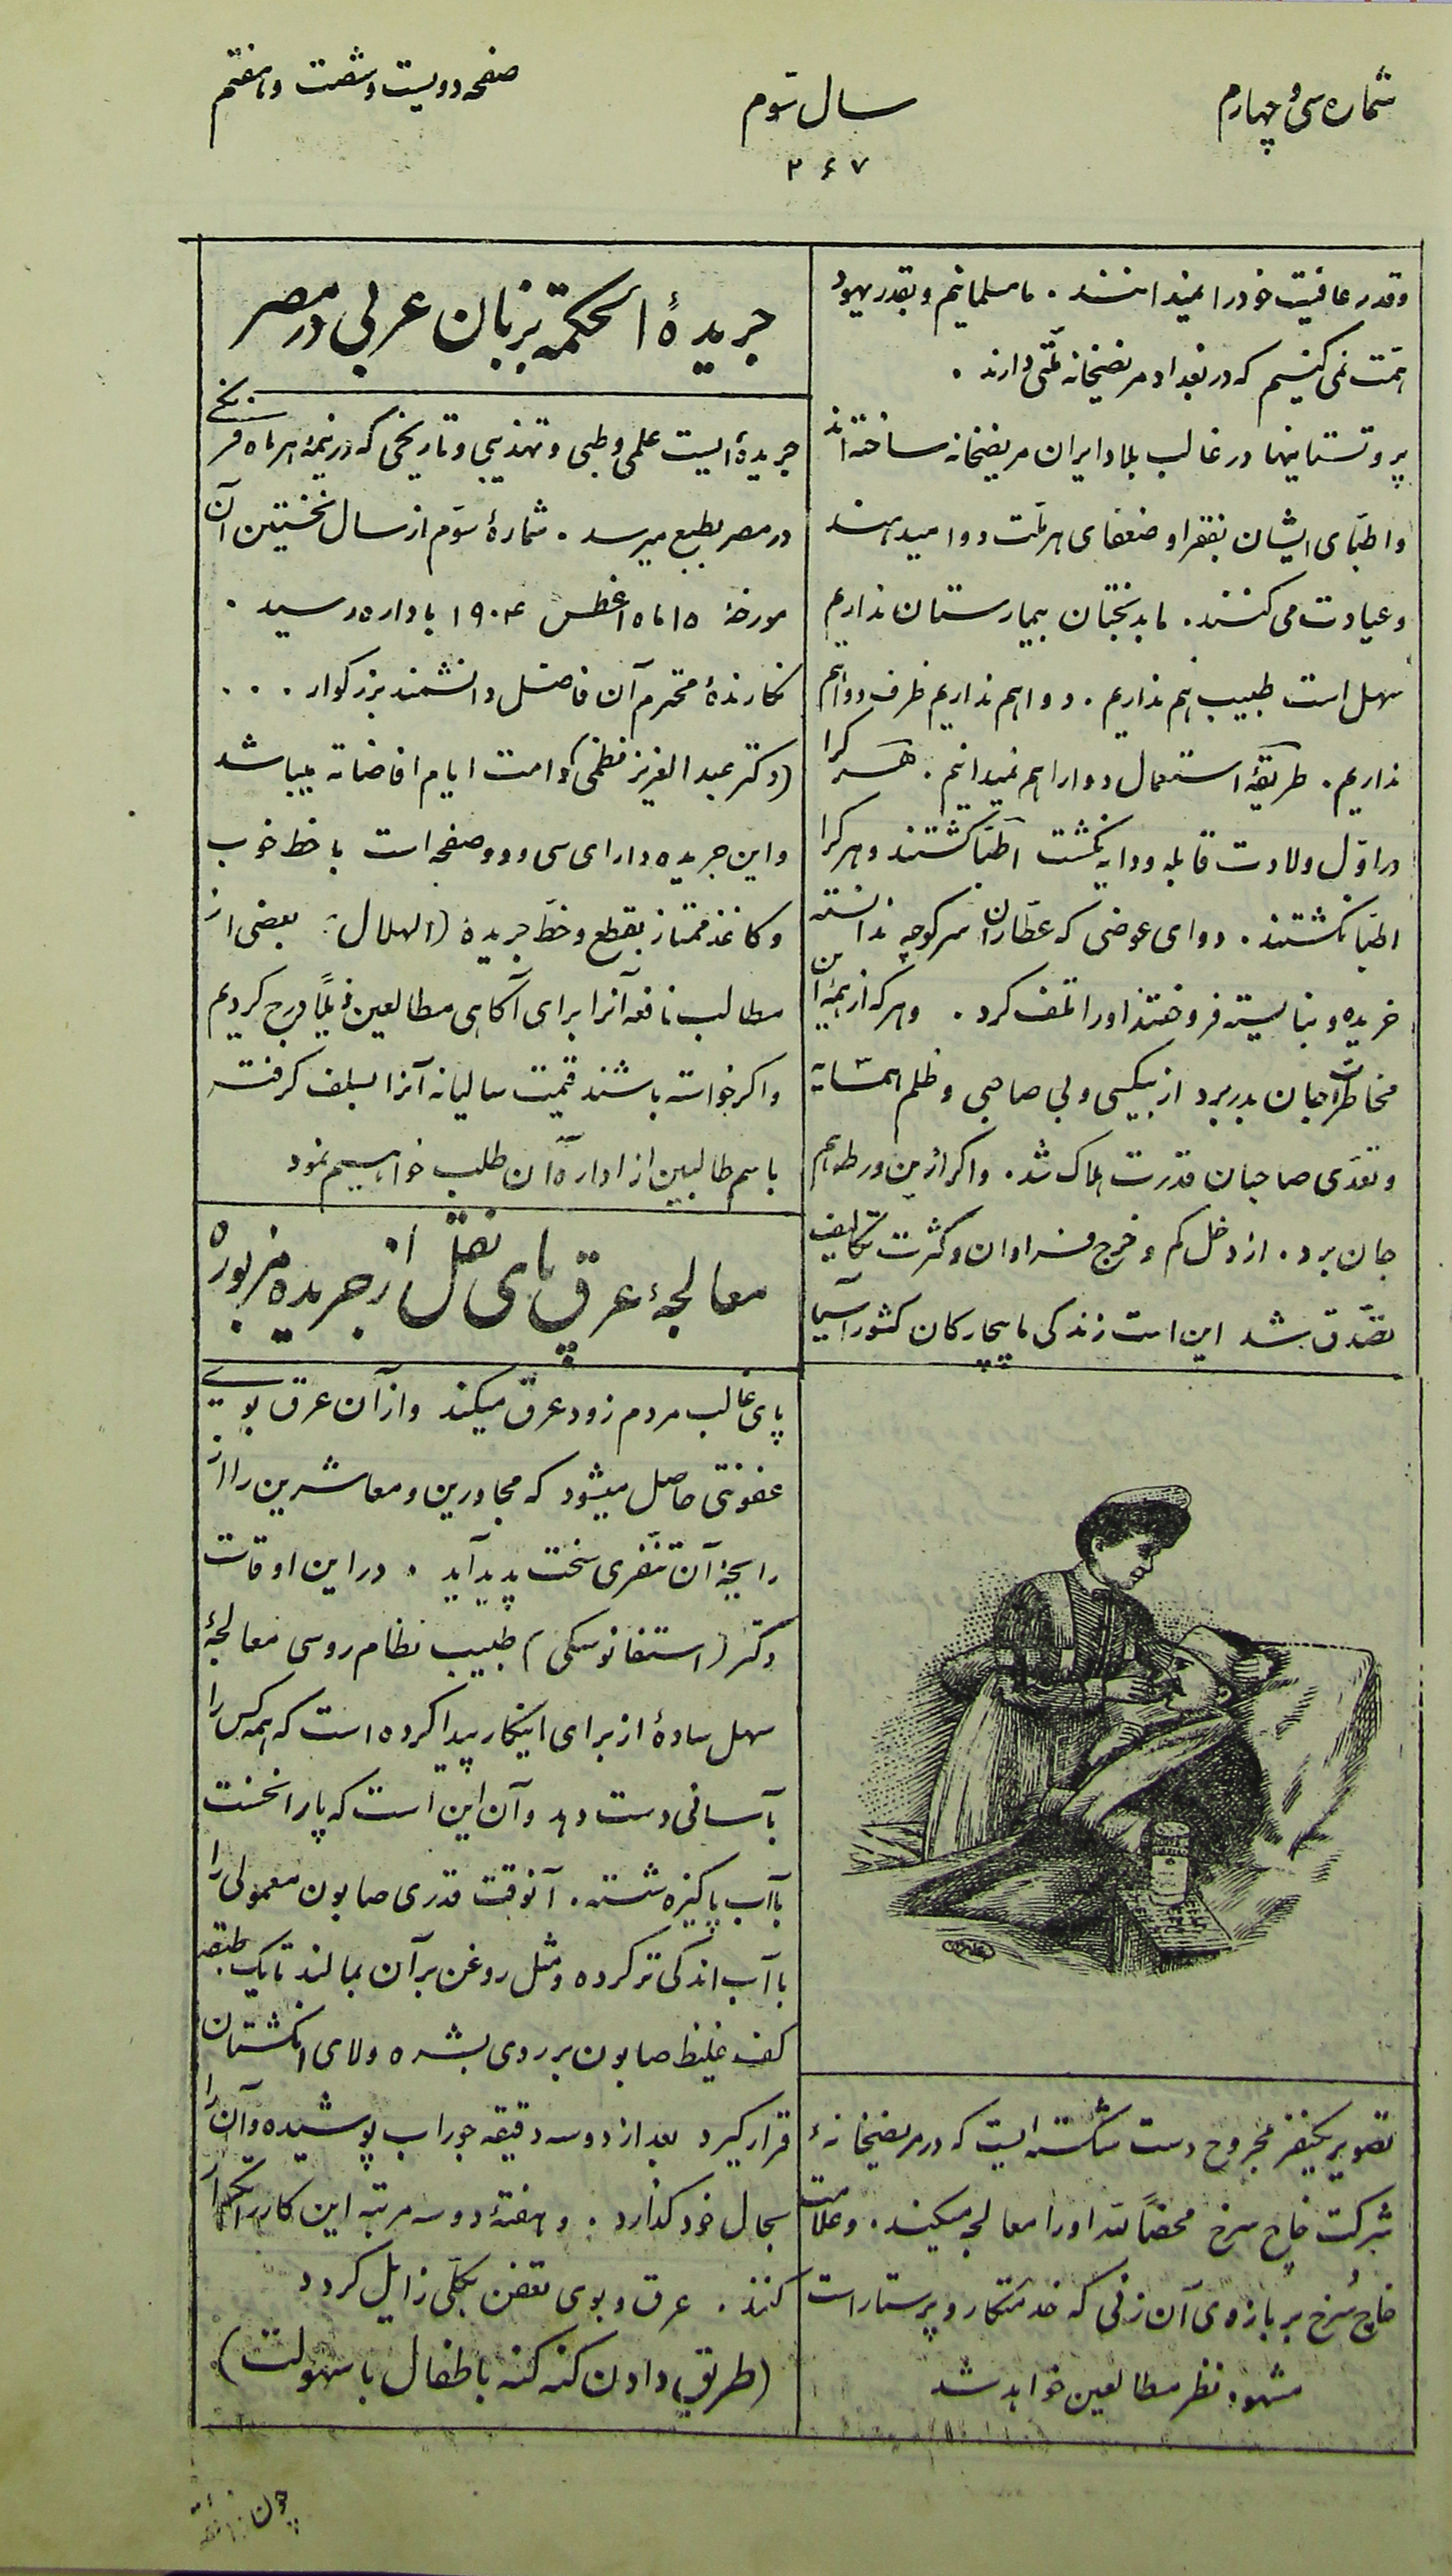 شماره سی و چهارم
سال سوّم
صفحه دویست و شصت و هفتم
۲۶۷
و قدر عافیت خود را نمیدانند . ما مسلمانیم و بقدر یهود
همّت نمی کنیم که در بغداد مریضخانه ملّتی دارند .
پروتستانیها در غالب بلاد ایران مریضخانه ساخته اند
و اطبّای ایشان بفقرا و ضعفای هر ملّت دوا میدهند
و عیادت می کنند . ما بدبختان بیمارستان نداریم
سهل است طبیب هم نداریم . دوا هم نداریم ظرف دوا هم
نداریم . طریقهٔ استعمال دوا را هم نمیدانیم . هر کرا
در اوّل ولادت قابله و دایه نکشت اطبّا کشتند و هر کرا
اطبّا نکشتند . دوای عوضی که عطّاران سر کوچه ندانسته
خریده و نبایسته فروختند او را تلف کرد . و هر که از همهٔ این
مخاطرات جان بدر برد از بیکسی و بی صاحبی و ظلم همسایه
و تعدّی صاحبان قدرت هلاک شد . و اگر ازین ورطه هم
جان برد . از دخل کم و خرج فراوان و کثرت تکالیف
تصدّق شد این است زندگی ما بیچارگان کشور آسیا
تصویر یکنفر مجروح دست شکسته ایست که در مریضخانهٔ
شرکت خاج سرخ محضاً للّه او را معالجه میکنند . و علامت
خاج سُرخ بر بازوی آن زنی که خدمتکار و پرستار است
مشهود نظر مطالعین خواهد شد
جریدهٔ الحکمة بزبان عربی در مصر
جریدهٔ ایست علمی و طبی و تهذیبی و تاریخی که در نیمهٔ هر ماه فرنگی
در مصر بطبع میرسد . شمارهٔ سوّم از سال نخستین آن
مورخهٔ ۱۵ ماه اغطس ۱۹۰۴ باداره رسید .
نگارندهٔ محترم آن فاضل دانشمند بزرگوار . . .
(دکتر عبد العزیز نظمی) دامت ایام افاضاته میباشد
و این جریده دارای سی و دو صفحه است با خط خوب
و کاغذ ممتاز بقطع و خطّ جریدهٔ (الهلال) بعضی از
مطالب نافعه آنرا برای آگاهی مطالعین ذیلاً درج کردیم
و اگر خواسته باشند قیمت سالیانه آنرا بسلف گرفته
باسم طالبین از ادارهٔ آن طلب خواهیم نمود
معالجهٔ عرق پای نقل از جریده مزبوره
پای غالب مردم زود عرق میکند و از آن عرق بوی
عفونتی حاصل میشود که مجاورین و معاشرین را از
رایحهٔ آن تنفّری سخت پدید آید . در این اوقات
دکتر (استفانوسکی) طبیب نظام روسی معالجهٔ
سهل سادهٔ از برای اینکار پیدا کرده است که همه کس را
بآسانی دست دهد و آن این است که پا را نخست
با آب پاکیزه شسته . آنوقت قدری صابون معمولی را
با آب اندکی تر کرده و مثل روغن بر آن بمالند تا یک طبقه
کف غلیظ صابون بر روی بشره و لای انگشتان
قرار گیرد بعد از دو سه دقیقه جوراب پوشیده و آن را
بحال خود گذارد . و هفتهٔ دو سه مرتبه این کار را تکرار
کنند . عرق و بوی تعفن بکلّی زایل گردد
(طریق دادن کنه کنه باطفال با سهولت)
چون